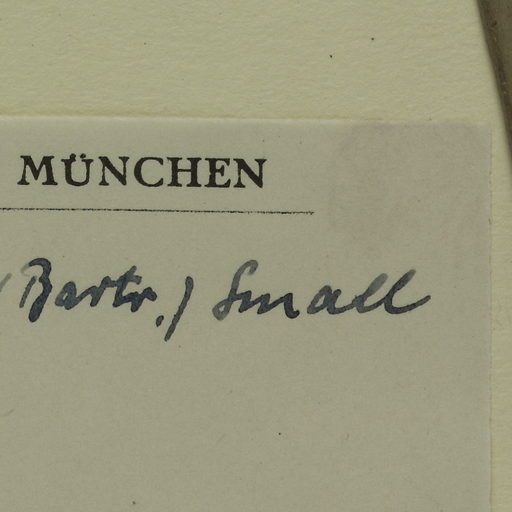 MÜNCHEN
(Bartr.) Small